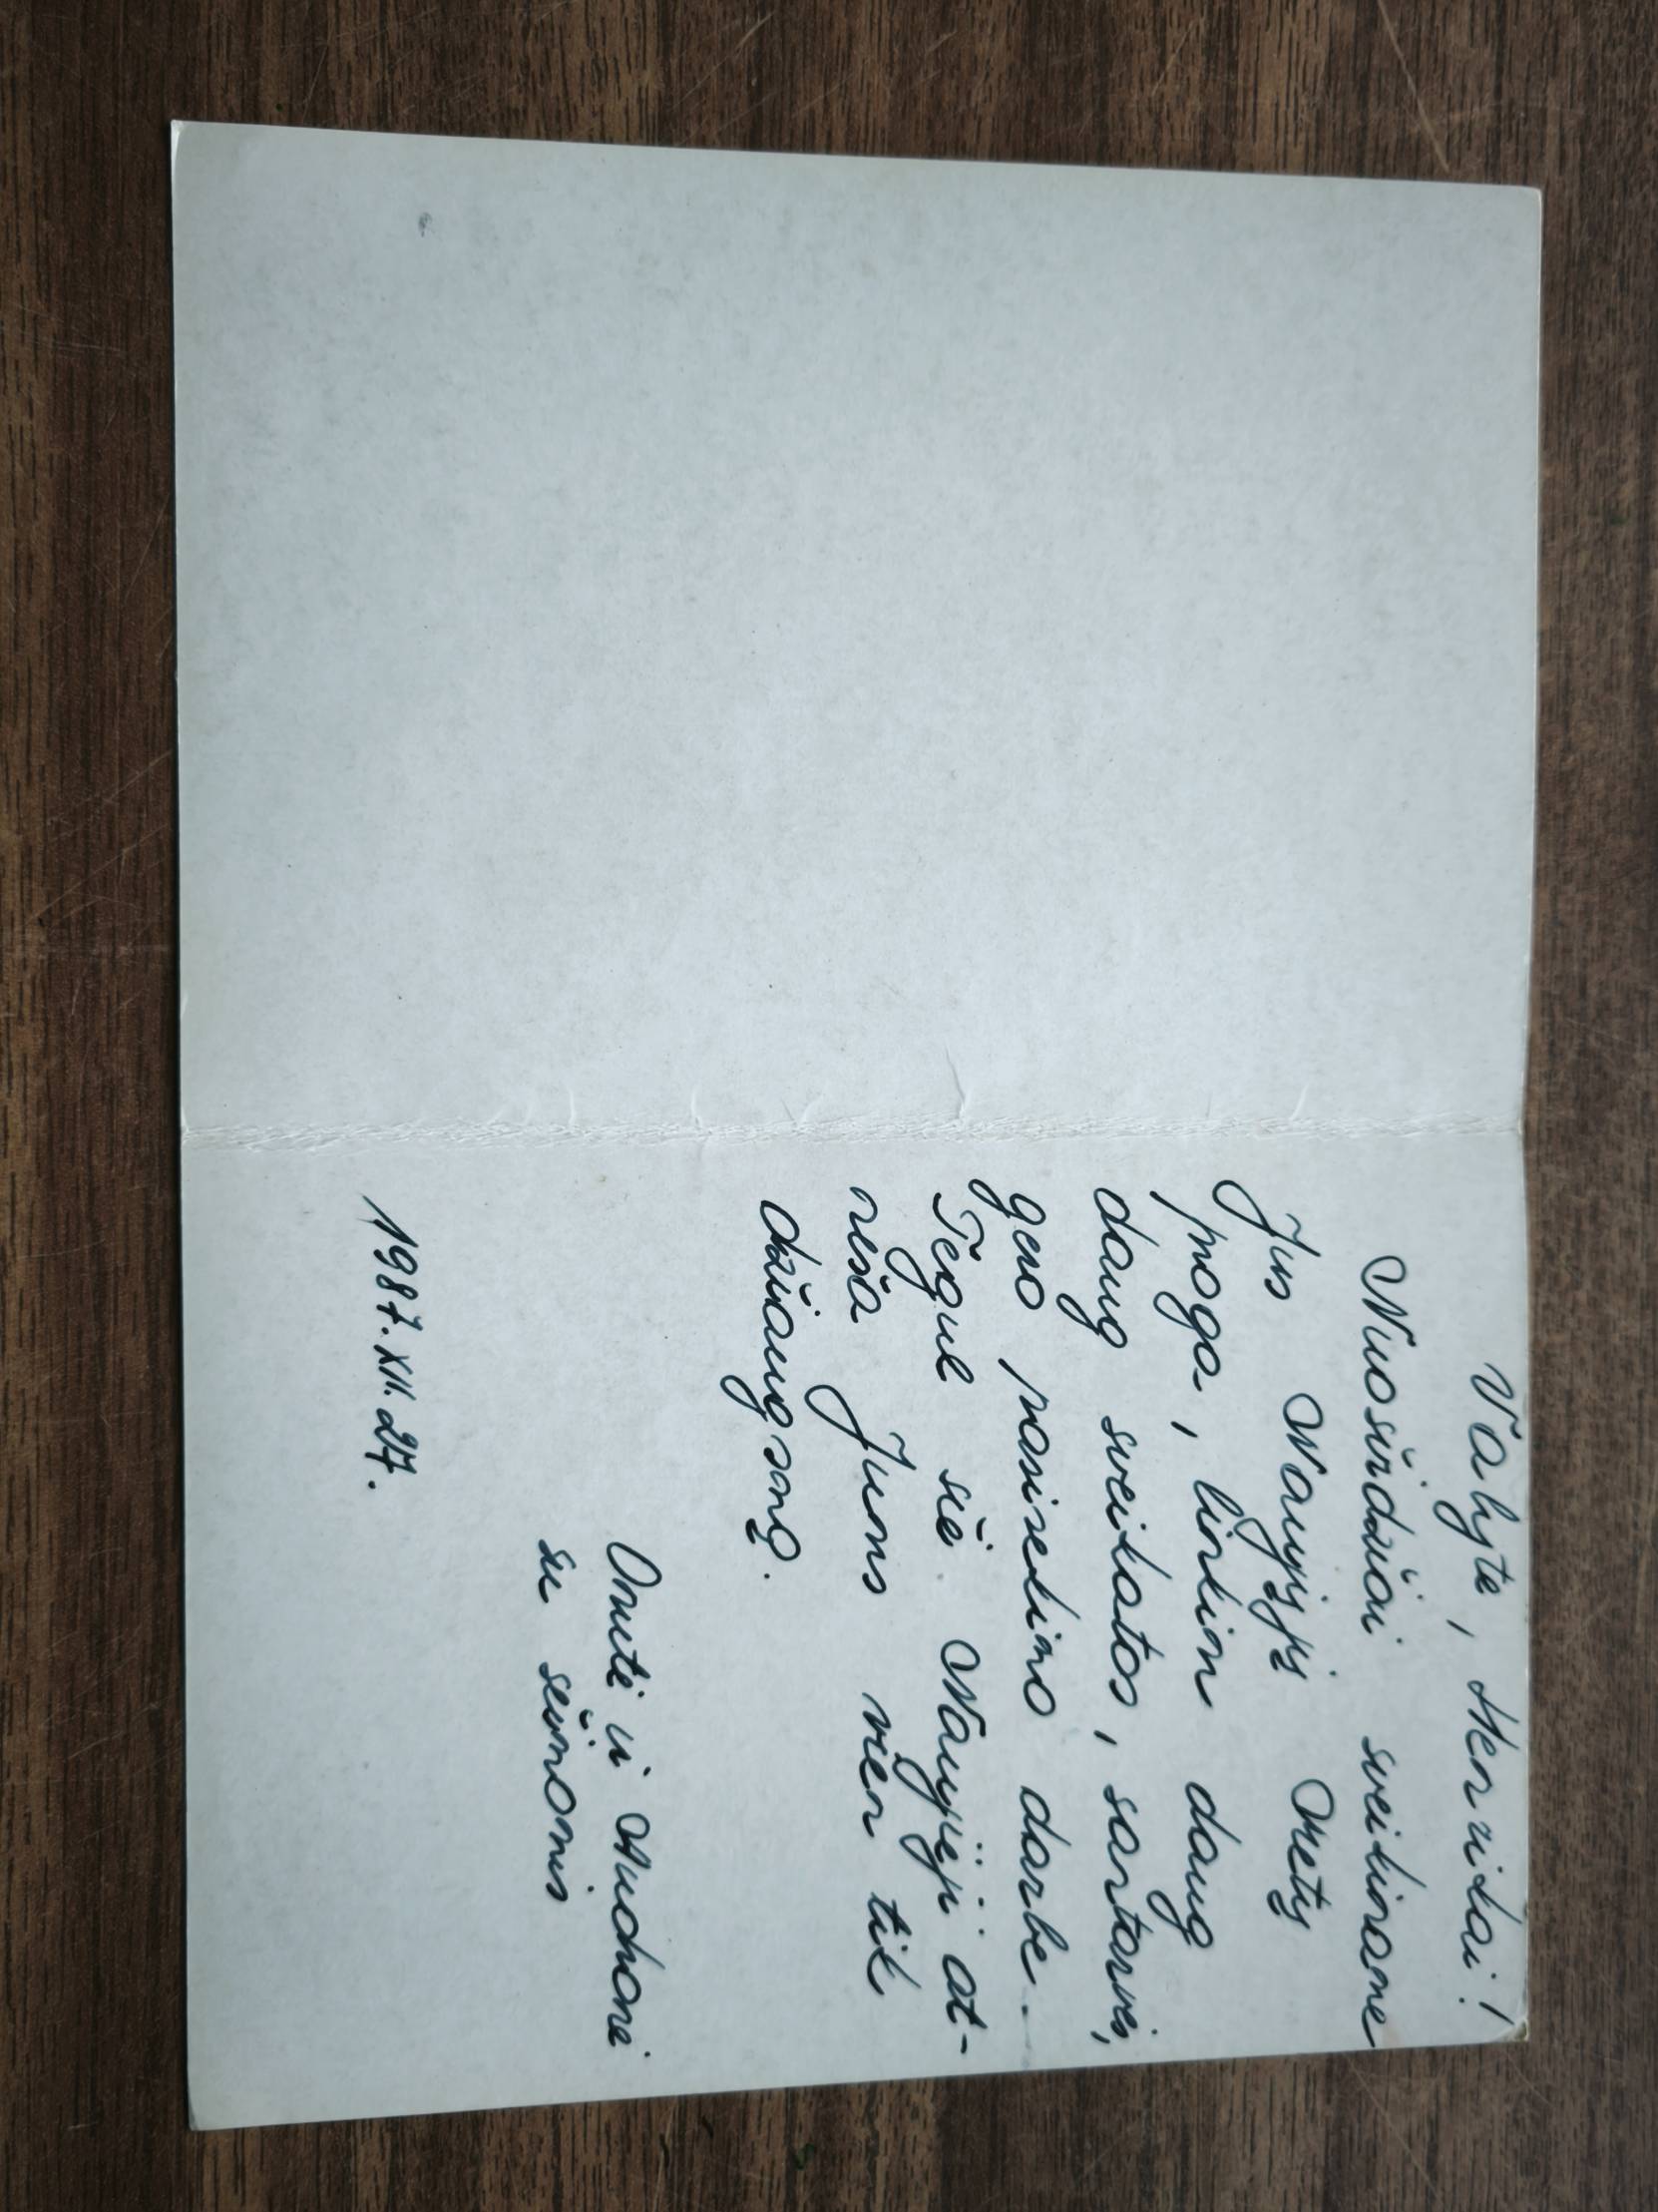 Valyte, Henrikai!
Nuoširdžiai sveikiname
Jus Naujųjų Metų
proga, linkim daug
daug sveikatos, santarvės,
gero pasisekimo darbe.
Tegul šie Naujieji at-
neša Jums vien tik
džiaugsmą.
Onutė ir Auchonė
su šeimomis
1987.XII.27.